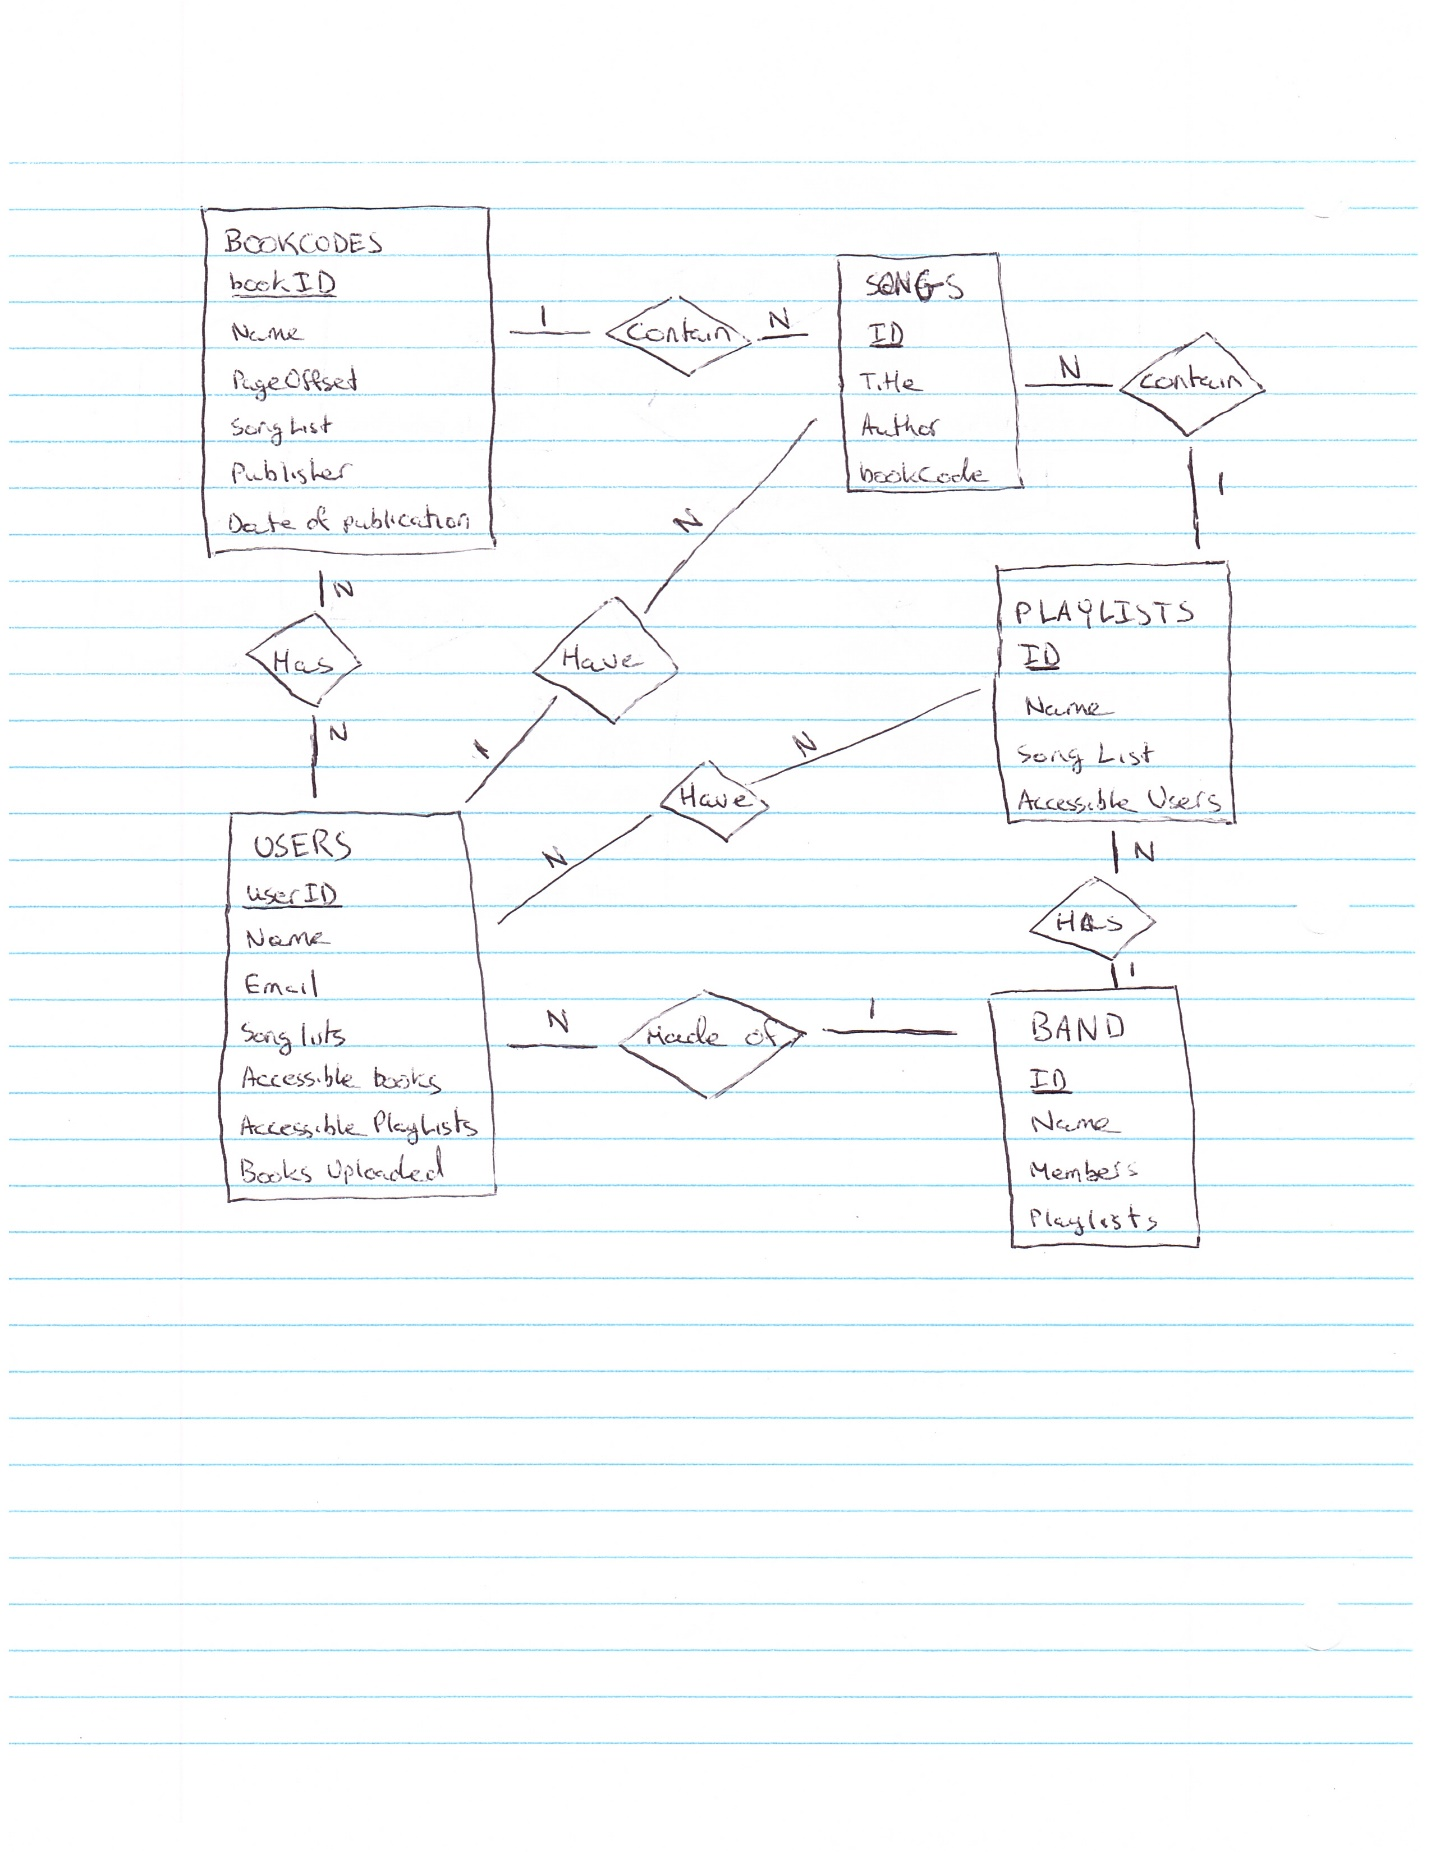 BOOKCODES
bookID
Name
PageOffset
Song List
Publisher
Date of publication
1
Contain
N
SONGS
ID
Title
Author
bookCode
N
Contain
1
N
Has
N
N
Have
1
PLAYLISTS
ID
Name
Song List
Accessible Users
N
Have
N
USERS
userID
Name
Email
Song lists
Accessible books
Accessible PlayLists
Books Uploaded
N
Made of
1
N
HAs
1
BAND
ID
Name
Members
Playlists